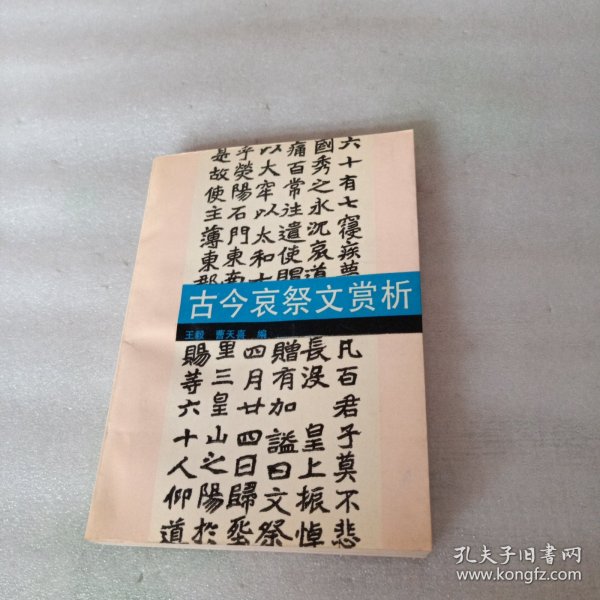 六十有七寢疾薨
國秀之永沉哀道
痛百常往遣使賜
以大牢以太和十
乎熒陽石門東南
是故使主薄東郡
古今哀祭文赏析
王毅 曹天喜 编
凡百君子莫不悲
長没 皇上振悼
贈有加 謚曰文祭
四月廿四日歸
里三皇山之陽於
賜等六十人仰道
孔夫子旧书网
www.kongfz.com